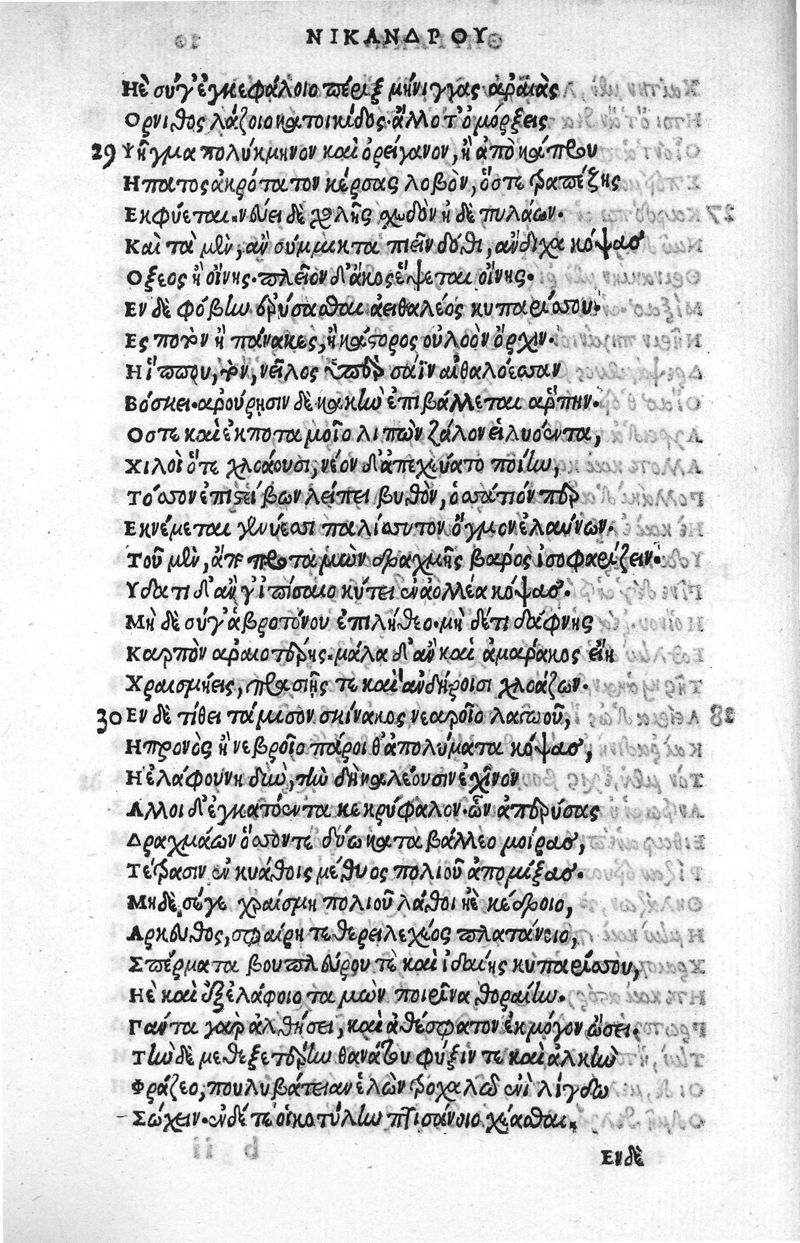 10 ΝΙΚΑΝΔΡΟΥ
Ηὲ σύγ' ἐγκεφάλοιο πέριξ μήνιγγας ἀραιὰς
Ορνιθος λάζοιο κατοικίδος· ἄλλοτ' ὀμόρξεις
29 Ψῆγμα πολύκμηνον καὶ ὀρείγανον, ἢ ἀπὸ κάπρου
Ηπατος ἀκρότατον κέρσας λοβὸν, ὅστε τραπέζης
Εκφύεται· νεύει δὲ χολῆς σχεδὸν ἠδὲ πυλάων·
Καὶ τὰ μὲν, ἂν σύμμικτα πιεῖν δίδοθι, ἄνδιχα κόψας
Οξεος ἢ οἴνης· πλεῖον δ' ἄκος ἕψεται οἴνης·
Εν δὲ φόβην ἐρύσασθαι ἀειθαλέος κυπαρίσσου·
Ες ποτὸν ἢ πάνακες, ἢ κάστορος οὐλοὸν ὄρχιν·
Η ἵππου, τὸν, νεῖλος ὑπὲρ σάϊν αἰθαλόεσσαν
Βόσκει· ἀρούρησιν δὲ κακὴν ἐπιβάλλεται ἅρπην·
Οστε καὶ ἐκ ποταμοῖο λιπὼν ζάλον εἰλυόεντα,
Χιλοὶ ὅτε χλοάουσι, νέον δ' ἀπεχεύατο ποίην,
Τόσσον ἐπιστείβων λείπει βυθὸν, ὁσσάτιόν περ
Εκνέμεται γενύεσσι παλίσσυτον ὄγμον ἐλαύνων·
Τοῦ μὲν, ἄπο προταμὼν δραχμῆς βάρος ἰσοφαρίζειν·
Υδατι δ' ἂν γ' ἱππίσαιο κύτει ἐν ἀολλέα κόψας·
Μὴ δὲ σύγ' ἁβροτόνου ἐπιλήθεο· μὴ δέ τι δάφνης
Καρπὸν ἀραιοτέρης· μάλα δ' ἂν καὶ ἀμάρακος εἴη
Χραισμήεις, πρασιῆς τε καὶ ἀνδήροισι χλοάζων·
30 Εν δὲ τίθει τάμισον σκίνακος νεαροῖο λαγωοῦ,
Η προκὸς ἢ νεβροῖο πάροιθ' ἀπολύματα κόψας,
Η ἐλάφου νηδὺν, τὴν δὴ καλέουσιν ἐχῖνον
Αλλοι δ' ἐγκατόεντα κεκρύφαλον· ὧν ἀπερύσας
Δραχμάων ὅσσον τε δύω καταβάλλεο μοίρας,
Τέτρασιν ἐν κυάθοις μέθυος πολιοῦ ἀπομίξας·
Μηδὲ, σέγε χραίσμη πολιοῦ λάθοι ἠὲ κέδροιο,
Αρκευθος, σφαίρη τε θερειλεχέος πλατάνειο,
Σπέρματα βουπλεύρου τὲ καὶ ἰδαίης κυπαρίσσου,
Ηὲ καὶ ἐξ ἐλάφοιο ταμὼν ποιφῖνα θοραίην·
Γάντα γαρ ἀλθήσει, καὶ ἀθέσφατον ἐκ μόγον ὤσει·
Τὴν δὲ μεθεξετέρην θανάτου φύξιν τε καὶ ἀλκὴν
Φράζεο, πουλυβάτειαν ἑλὼν τροχαλῷ ἐνὶ λίγδῳ
Σώχειν· ἐν δέ τέ οἱ κοτύλην πτισάνοιο χέασθαι,
Ενδὲ